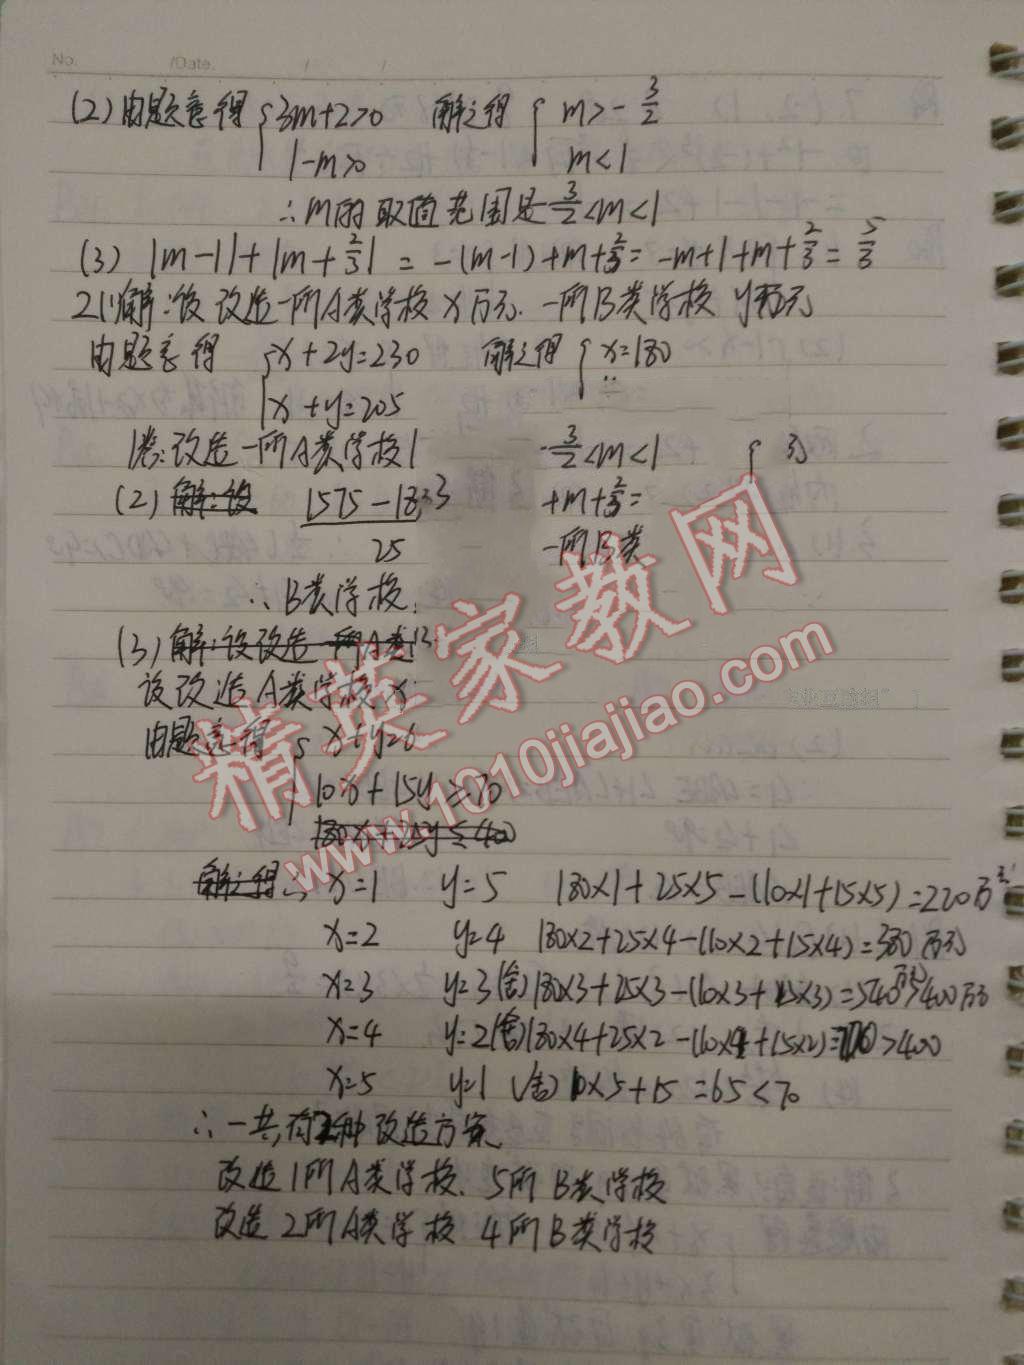 No. /Date. / /
(2)由题意得 { 3m+2>0 解之得 { m>-3/2
1-m>0 m<1
∴m的取值范围是-3/2<m<1
(3) |m-1|+|m+2/3| = -(m-1)+m+2/3= -m+1+m+2/3=5/3
21(1)解:设改造一所A类学校x万元.一所B类学校y万元
由题意得 { x+2y=230 解之得 { x=180
x+y=205
答:改造一所A类学校1 -3/2<m<1 {
(2) 解:设 1575-18 3 +m+2/3=
25 一所B类
∴B类学校
(3)解:设改造一所A类
设改造A类学校x
由题意得 { x+y=6
10x+15y≥70
180x+25y≤400
解之得 x=1 y=5 180×1+25×5-(10×1+15×5)=220万元
x=2 y=4 180×2+25×4-(10×2+15×4)=380万元
x=3 y=3(舍)180×3+25×3-(10×3+15×3)=540万元>400万元
x=4 y=2(舍)180×4+25×2-(10×4+15×2)=700>400
x=5 y=1 (舍)10×5+15=65<70
∴一共有2种改造方案
改造1所A类学校.5所B类学校
改造2所A类学校 4所B类学校
精英家教网
www.1010jiajiao.com